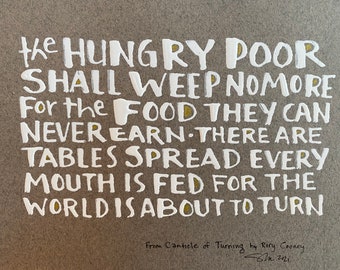 the HUNGRY POOR
SHALL WEEP NO MORE
FOR the FOOD THEY CAN
NEVER EARN · THERE ARE
TABLES SPREAD EVERY
MOUTH IS FED FOR THE
WORLD IS ABOUT TO TURN
From Canticle of Turning by Rory Cooney